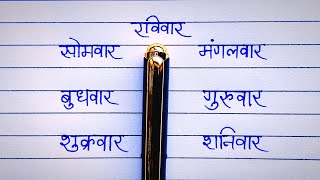 रविवार
सोमवार मंगलवार
बुधवार गुरुवार
शुक्रवार शनिवार